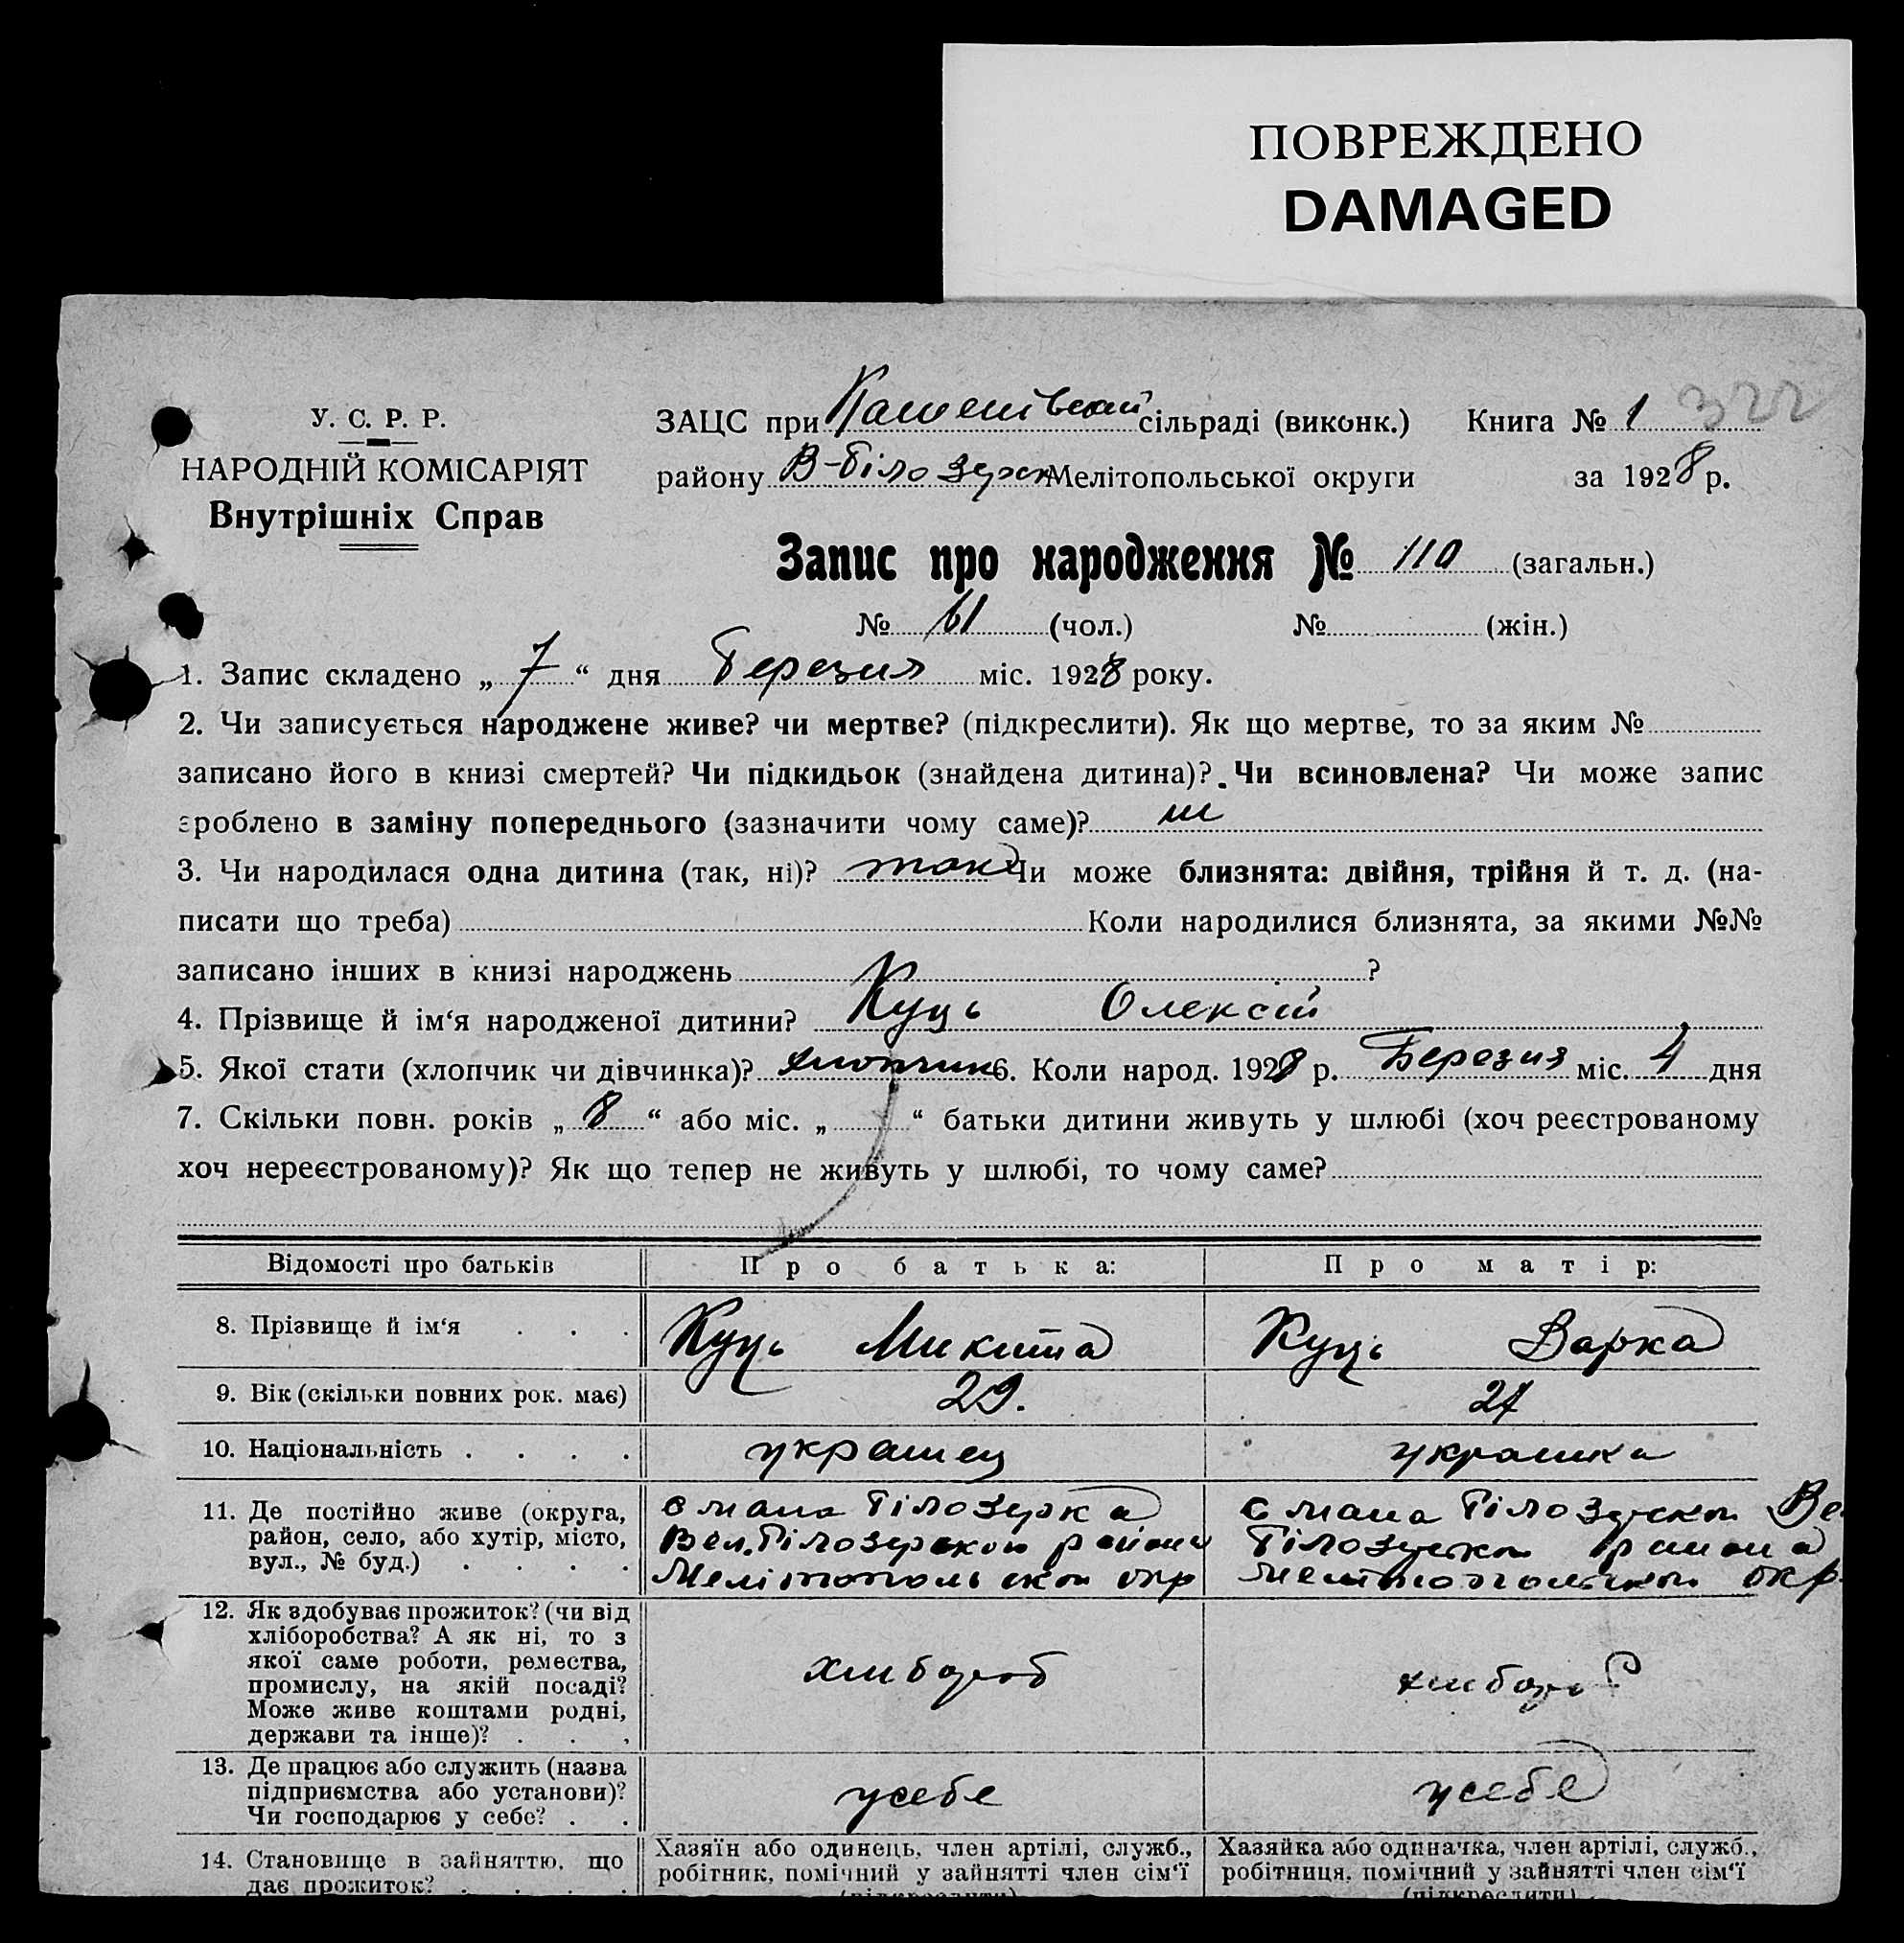 ПОВРЕЖДЕНО
DAMAGED
У. С. Р. Р.
НАРОДНІЙ КОМІСАРІЯТ
Внутрішніх Справ
ЗАЦС при сільраді (виконк.) Книга № 1 322
району В-Білозерск Мелітопольської округи за 1928 р.
Запис про народження № 110 (загальн.)
№ 61 (чол.) № (жін.)
1. Запис складено „ 7 “ дня Березня міс. 1928 року.
2. Чи записується народжене живе? чи мертве? (підкреслити). Як що мертве, то за яким №
записано його в книзі смертей? Чи підкидьок (знайдена дитина)? Чи всиновлена? Чи може запис
зроблено в заміну попереднього (зазначити чому саме)? ні
3. Чи народилася одна дитина (так, ні)? так Чи може близнята: двійня, трійня й т. д. (на-
писати що треба) Коли народилися близнята, за якими №№
записано інших в книзі народжень ?
4. Прізвище й ім‘я народженої дитини? Куць Олексій
5. Якої стати (хлопчик чи дівчинка)? хлопчик 6. Коли народ. 1928 р. Березня міс. 4 дня
7. Скільки повн. років „ 8 “ або міс. „ “ батьки дитини живуть у шлюбі (хоч реєстрованому
хоч нереєстрованому)? Як що тепер не живуть у шлюбі, то чому саме?
Відомості про батьків Про батька: Про матір:
8. Прізвище й ім‘я . . . Куць Микита Куць Варка
9. Вік (скільки повних рок. має) 29. 27
10. Національність . . . . украінец украінка
11. Де постійно живе (округа,
район, село, або хутір, місто,
вул., № буд.) . . . .
Білозерка
Вел. Білозерской района
Мелітопольской окр
Білозерской Ве
Білозерской района
Мелітопольской окр.
12. Як здобуває прожиток? (чи від
хліборобства? А як ні, то з
якої саме роботи, ремества,
промислу, на якій посаді?
Може живе коштами родні,
держави та інше)? . . .
хлібороб хлібороб
13. Де працює або служить (назва
підприємства або установи)?
Чи господарює у себе? . .
усебе усебе
14. Становище в зайняттю, що
дає прожиток? . . . .
Хазяїн або одинець, член артілі, служб.,
робітник, помічний у зайнятті член сім‘ї
(підкреслити)
Хазяйка або одиначка, член артілі, служб.,
робітниця, помічний у зайнятті член сім‘ї
(підкреслити)